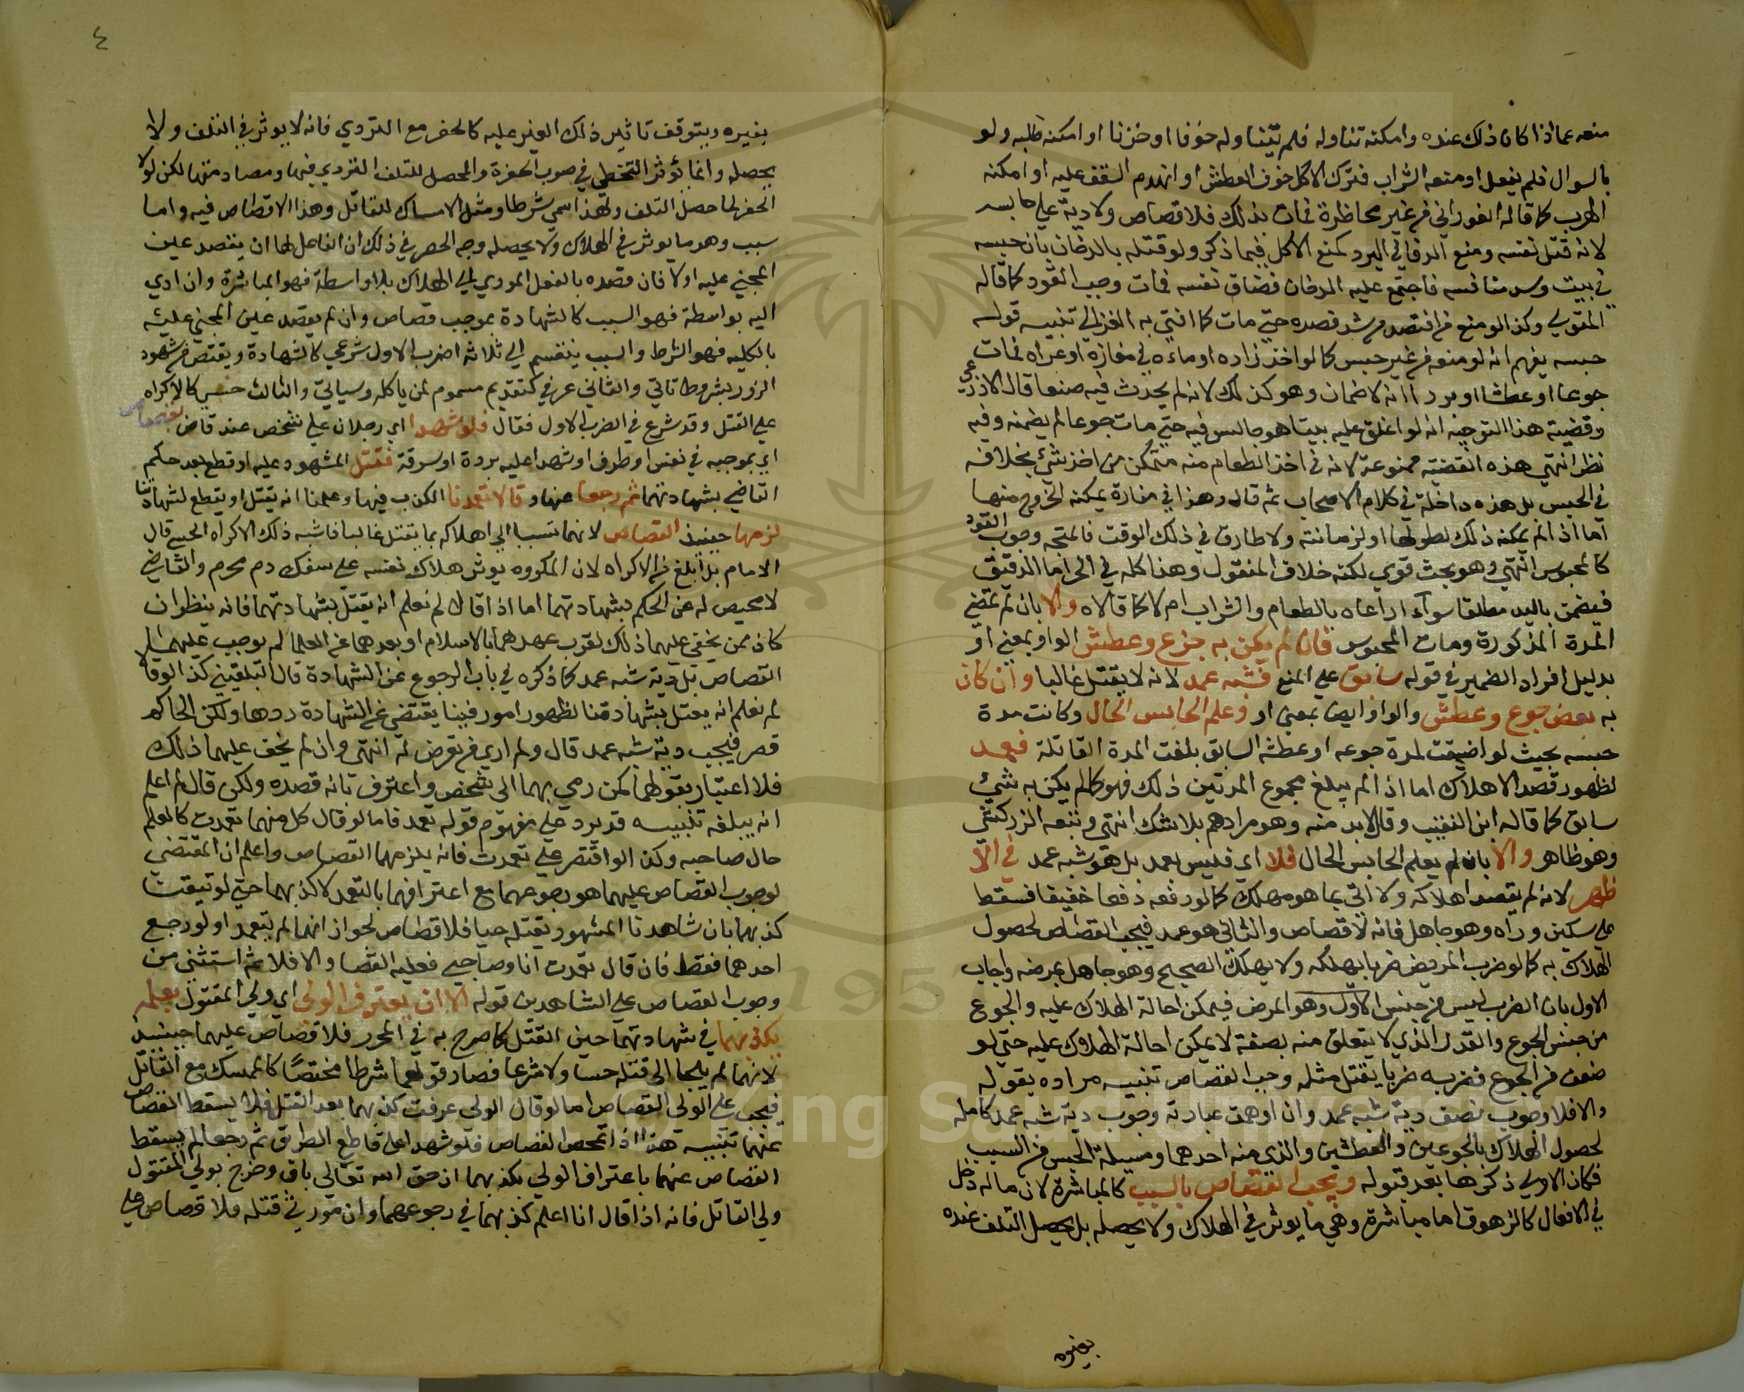 منعه عما اذا كان ذلك عنده وامكنه تناوله فلم يتناوله خوفا او حزنا او امكنه طلبه ولو
بالسوال فلم يفعل او منعه الشراب فترك الاكل خوف العطش او انهدم السقف عليه او امكنه
الهرب كما قاله الفوراني من غير مخاطرة فمات بذلك فلا قصاص ولا دية على حابسه
لانه قتل نفسه ومنع الدفا في البرد كمنع الاكل فيما ذكر ولو قتله بالدخان بان حبسه
في بيت وسد منافسه فاجتمع عليه الدخان فضاق نفسه فمات وجب القود كما قاله
المتولي وكذا لو منع من افتصد من شد فصده حتى مات كما افتى به الغزالي تنبيه قوله
حبسه يفهم انه لو منعه من غير حبس كما لو اخذ زاده او ماءه في مفازة او عراه فمات
جوعا او عطشا او بردا انه لا ضمان وهو كذلك لانه لم يحدث فيه صنعا قال الاذرعي
وقضية هذا التوجيه انه لو اغلق عليه بيتا هو جالس فيه حتى مات جوعا لم يضمنه وفيه
نظر انتهى هذه القضية ممنوعة لانه في اخذ الطعام منه متمكن من اخذ شيء بخلافه
في الحبس بل هذه داخلة في كلام الاصحاب ثم قال وهذا في مفازة يمكنه الخروج منها
اما اذا لم يمكنه ذلك لطولها او لزمانته ولا طارق في ذلك الوقت فالمتجه وجوب القود
كالمحبوس انتهى وهو بحث قوي لكنه خلاف المنقول وهذا كله في الحر اما الرقيق
فيضمن باليد مطلقا سواء اراعاه بالطعام والشراب ام لا كما قالاه والا بان لم تمض
المدة المذكورة ومات المحبوس فان لم يكن به جزع وعطش الواو بمعنى او
بدليل افراد الضمير في قوله سابق على المنع فشبه عمد لانه لا يقتل غالبا وان كان
به بعض جوع وعطش والواو ايضا بمعنى او وعلم الحابس الحال وكانت مدة
حبسه بحيث لو اضيفت لمدة جوعه او عطشه السابق بلغت المدة القاتلة فعمد
لظهور قصد الاهلاك اما اذا لم يبلغ مجموع المدتين ذلك فهو كما لم يكن به شيء
سابق كما قاله ابن النقيب وقال لابد منه وهو مرادهم بلا شك انتهى وتبعه الزركشي
وهو ظاهر والا بان لم يعلم الحابس الحال فلا اي فليس بعمد بل هو شبه عمد في الا
ظهر لانه لم يقصد اهلاكه ولا اتى بما هو مهلك كما لو دفعه دفعا خفيفا فسقط
على سكين وراه وهو جاهل فانه لا قصاص والثاني هو عمد فيجب القصاص لحصول
الهلاك به كما لو ضرب المريض ضربا يهلكه ولا يهلك الصحيح وهو جاهل بمرضه واجاب
الاول بان الضرب ليس من جنس الاول وهو المرض فيمكن احالة الهلاك عليه والجوع
من جنس الجوع والقدر الذي لا يتعلق منه بصفة لا يمكن احالة الهلاك عليه حتى لو
ضعف من الجوع فضربه ضربا يقتل مثله وجب القصاص تنبيه مراده بقوله
والا فلا وجوب نصف دية شبه عمد وان اوهمت عبارته وجوب دية شبه عمد كاملة
لحصول الهلاك بالجوعين والعطشين والذي منه احدهما ومسيلة الحبس من السبب
فكان الاولى ذكرها بعد قوله ويجب القصاص بالسبب كالمباشرة لان ما له دخل
في الافعال كالزهوق اما مباشرة وهي ما يوثر في الهلاك ولا يحصله بل يحصل التلف عنده
بغيره
٤
بغيره ويتوقف تاثير ذلك الغير عليه كالحفر مع التردي فانه لا يوثر في التلف ولا
يحصله وانما يؤثر التخطي في صوب الحفرة والمحصل للتلف التردي فيها ومصادمتها لكن لولا
الحفر لما حصل التلف ولهذا سمي شرطا ومثل الامساك للقاتل وهذا لا قصاص فيه واما
سبب وهو ما يوثر في الهلاك ولا يحصله وجه الحصر في ذلك ان الفاعل لها ان يقصد عين
المجني عليه او لا فان قصده بالفعل المودي الى الهلاك بلا واسطة فهو المباشرة وان ادي
اليه بواسطة فهو السبب كالشهادة بموجب قصاص وان لم يقصد عين المجني عليه
بالكليه فهو الشرط والسبب ينقسم الى ثلاثة اضرب الاول شرعي كالشهادة ويقتص من شهود
الزور بشروط تاتي والثاني عرفي كتقديم مسموم لمن ياكله وسياتي والثالث حسي كالاكراه
على القتل وقد شرع في الضرب الاول فقال فلو شهدا اي رجلان على شخص عند قاض بقصاص
اي بموجبه في نفس او طرف او شهدا عليه بردة او سرقة فقتل المشهود عليه او قطع بعد حكم
القاضي بشهادتهما ثم رجعا عنها وقالا تعمدنا الكذب فيها وعلمنا انه يقتل او يقطع بشهادتنا
لزمهما حينيذ القصاص لانهما تسببا الى اهلاكه بما يقتل غالبا فاشبه ذلك الاكراه الحسي قال
الامام بل ابلغ من الاكراه لان المكره يوثر هلاك نفسه على سفك دم محرم والقاضي
لا محيص له عن الحكم بشهادتهما اما اذا قالا لم نعلم انه يقتل بشهادتهما فانه ينظر ان
كانا ممن يخفى عليهما ذلك لقرب عهدهما بالاسلام او بعدهما عن العلما لم يوجب عليهما
القصاص بل دية شبه عمد كما ذكره في باب الرجوع عن الشهادة قال البلقيني كذا لو قالا
لم نعلم انه يقتل بشهادتنا لظهور امور فينا يقتضي عن الشهادة ردها ولكن الحاكم
قصر فيجب دية شبه عمد قال ولم ار من تعرض له انتهى وان لم يخف عليهما ذلك
فلا اعتبار بقولهما كمن رمى بهما الى شخص واعترف بانه قصده ولكن قال لم اعلم
انه يبلغه تنبيه قد يرد على مفهوم قوله تعمد فا ما لو قال كل منهما تعمدت كالعلم
حال صاحبه وكذا لو اقتصر على تعمدت فانه يلزمهما القصاص واعلم ان المقتضي
لوجوب القصاص عليهما هو رجوعهما مع اعترافهما بالتعمد لا كذبهما حتى لو تيقنت
كذبهما بان شاهدنا المشهود بقتله حيا فلا قصاص لجواز انهما لم يتعمدا ولو رجع
احدهما فقط فان قال تعمدت انا وصاحبي فعليه القصاص والا فلا ثم استثنى من
وجوب القصاص على الشاهدين قوله الا ان يعترف الولي اي ولي المقتول بعلمه
بكذبهما في شهادتهما حين القتل كما صرح به في المحرر فلا قصاص عليهما حينيذ
لانهما لم يلجا الى قتله حسا ولا شرعا فصار قولهما شرطا محتصا كالممسك مع القاتل
فيجب على الولي القصاص اما لو قال الولي عرفت كذبهما بعد القتل فلا يسقط القصاص
عنهما تنبيه هذا اذا تمحض القصاص فلو شهدا على قاطع الطريق ثم رجعا لم يسقط
القصاص عنهما باعتراف الولي بكذبهما اذ حق الله تعالى باق وخرج بولي المقتول
ولي القاتل فانه اذا قال انا اعلم كذبهما في رجوعهما وان موروثي قتله فلا قصاص على